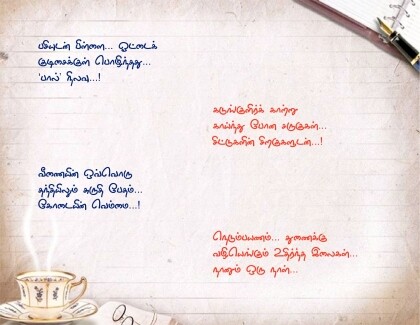 பசியுடன் பிள்ளை... ஓட்டைக்
குடிசைக்குள் பொழிந்தது...
'பால்' நிலவு...!
கடுங்குளிர்க் காற்று
காய்ந்து போன சருகுகள்...
சிட்டுகளின் சிறகுகளுடன்...!
வீணையின் ஒவ்வொரு
தந்தியிலும் சுருதி பேதம்...
கோடையின் வெம்மை...!
நெடும்பயணம்... துணைக்கு
வழியெங்கும் உதிர்ந்த இலைகள்...
நானும் ஒரு நாள்...